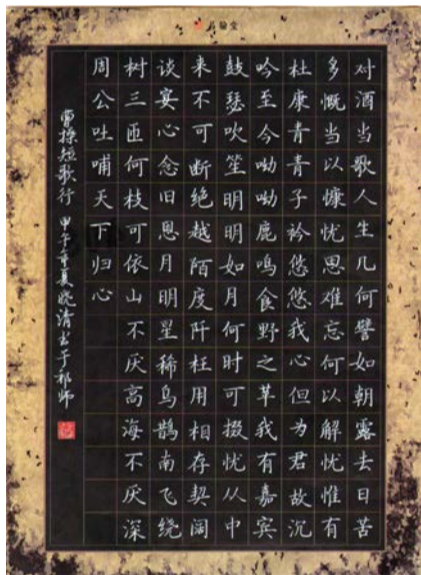 对酒当歌人生几何譬如朝露去日苦
多慨当以慷忧思难忘何以解忧惟有
杜康青青子衿悠悠我心但为君故沉
吟至今呦呦鹿鸣食野之苹我有嘉宾
鼓瑟吹笙明明如月何时可掇忧从中
来不可断绝越陌度阡枉用相存契阔
谈宴心念旧恩月明星稀乌鹊南飞绕
树三匝何枝可依山不厌高海不厌深
周公吐哺天下归心
曹操短歌行 甲午重夏晓清书于